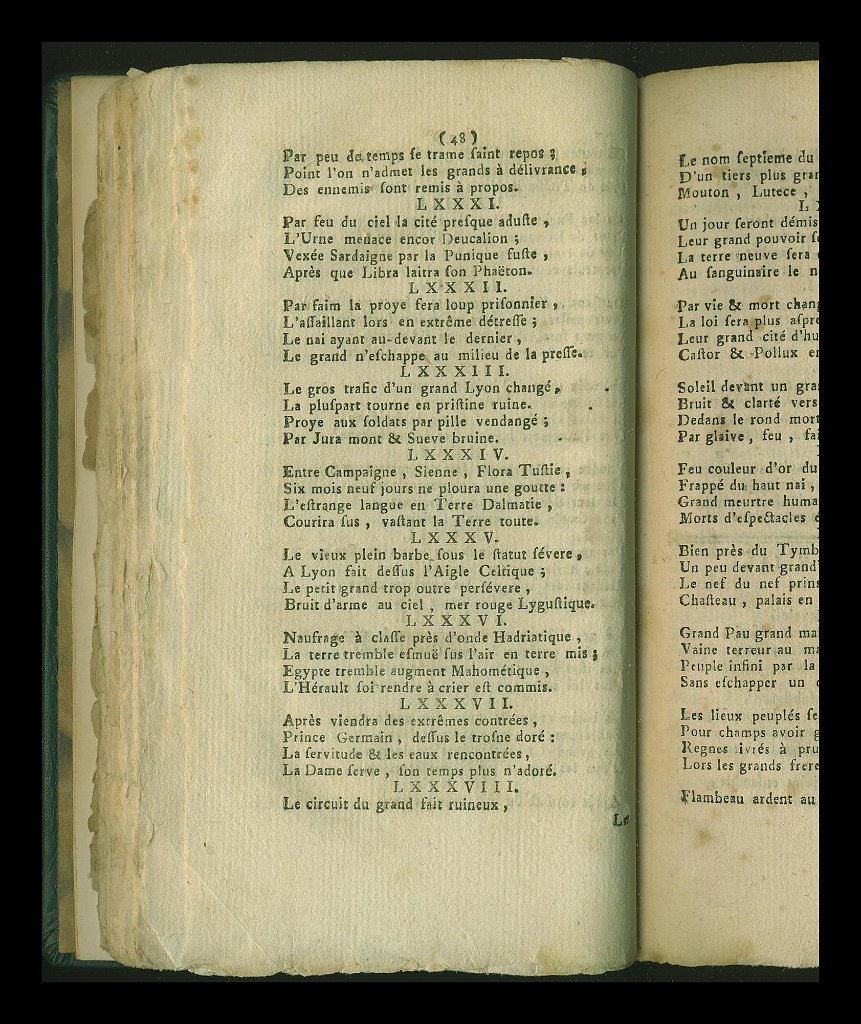 (48)
Par peu de temps ſe trame ſaint repos ;
Point l'on n'admet les grands à délivrance ;
Des ennemis ſont remis à propos.
LXXXI.
Par feu du ciel la cité preſque aduſte ,
L'Urne menace encor Deucalion ;
Vexée Sardaigne par la Punique fuſte ,
Après que Libra laitra ſon Phaëton.
LXXXII.
Par faim la proye fera loup priſonnier ,
L'aſſaillant lors en extrême détreſſe ;
Le nai ayant au-devant le dernier ,
Le grand n'eſchappe au milieu de la preſſe.
LXXXIII.
Le gros trafic d'un grand Lyon changé ,
La pluſpart tourne en priſtine ruine.
Proye aux ſoldats par pille vendangé ;
Par Jura mont & Sueve bruine.
LXXXIV.
Entre Campaigne , Sienne , Flora Tuſtie ,
Six mois neuf jours ne ploura une goutte :
L'eſtrange langue en Terre Dalmatie ,
Courira ſus , vaſtant la Terre toute.
LXXXV.
Le vieux plein barbe ſous le ſtatut ſévere ,
A Lyon fait deſſus l'Aigle Celtique ;
Le petit grand trop outre perſévere ,
Bruit d'arme au ciel , mer rouge Lyguſtique.
LXXXVI.
Naufrage à claſſe près d'onde Hadriatique ,
La terre tremble eſmuë ſus l'air en terre mis ;
Egypte tremble augment Mahométique ,
L'Hérault ſoi rendre à crier eſt commis.
LXXXVII.
Après viendra des extrêmes contrées ,
Prince Germain , deſſus le troſne doré :
La ſervitude & les eaux rencontrées ,
La Dame ſerve , ſon temps plus n'adoré.
LXXXVIII.
Le circuit du grand fait ruineux ,
Le
Le nom ſeptieme du
D'un tiers plus gran
Mouton , Lutece ,
L
Un jour ſeront démis
Leur grand pouvoir
La terre neuve ſera
Au ſanguinaire le
Par vie & mort chang
La loi ſera plus aſpre
Leur grand cité d'hu
Caſtor & Pollux en
Soleil devant un gra
Bruit & clarté vers
Dedans le rond mort
Par glaive , feu , fai
Feu couleur d'or du
Frappé du haut nai ,
Grand meurtre huma
Morts d'eſpectacles
Bien près du Tymb
Un peu devant grand
Le nef du nef prins
Chaſteau , palais en
Grand Pau grand ma
Vaine terreur au ma
Peuple infini par la
Sans eſchapper un
Les lieux peuplés ſe
Pour champs avoir g
Regnes livrés à pru
Lors les grands frere
Flambeau ardent au